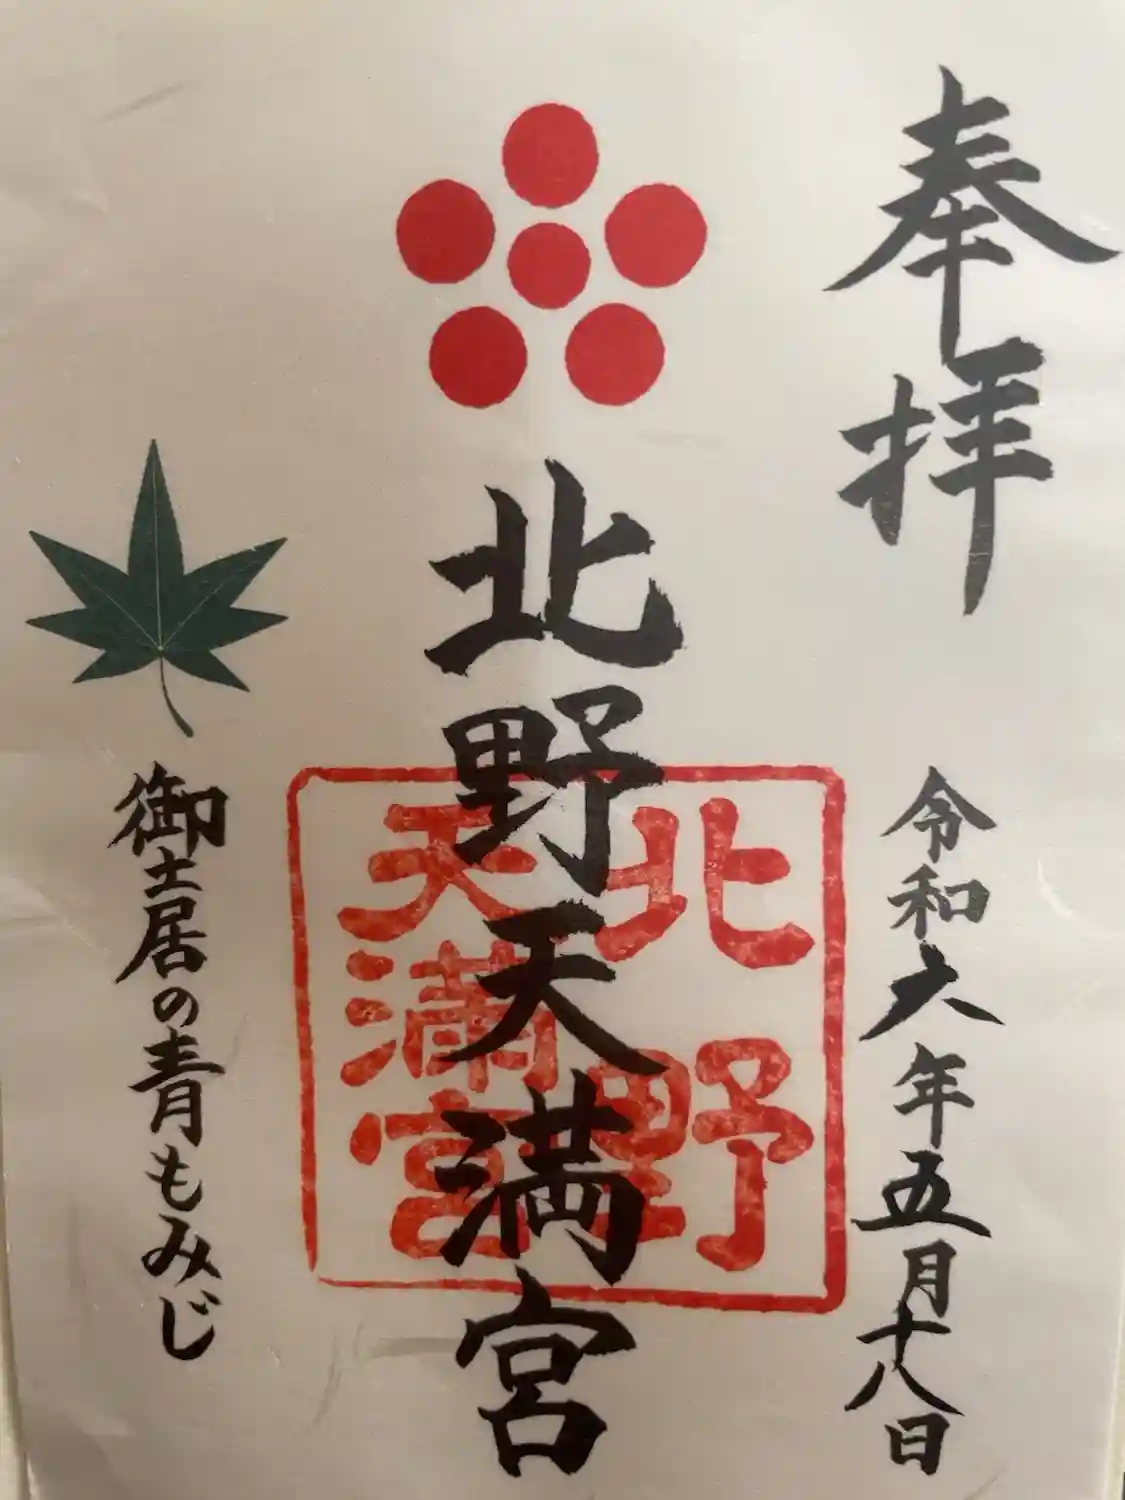 奉拝
令和六年五月十八日
北野天満宮
北野
天満宮
御土居の青もみじ